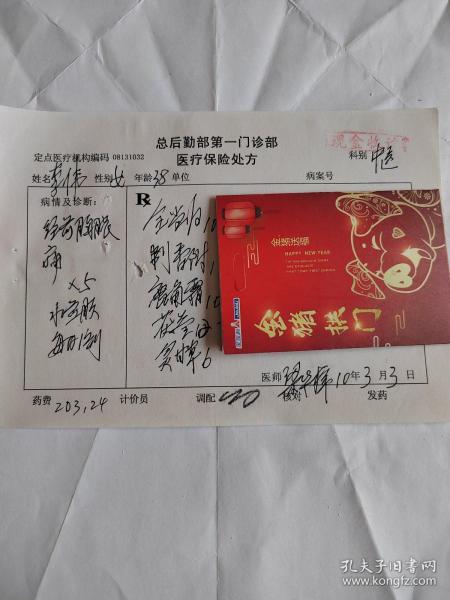 总后勤部第一门诊部
现金收
定点医疗机构编码 08131032
医疗保险处方
科别 中医
姓名 李伟 性别 女 年龄 38 单位
病案号
病情及诊断：
经前腹胀
痛
×5
水煎服
每日1剂
R
全当归 10
制香附 1
鹿角霜 1
炙甘草 6
金猪送福
HAPPY NEW YEAR
金猪拱门
医师 10年3月3日
药费 203,24 计价员 调配 核对 发药
孔夫子旧书网
www.kongfz.com